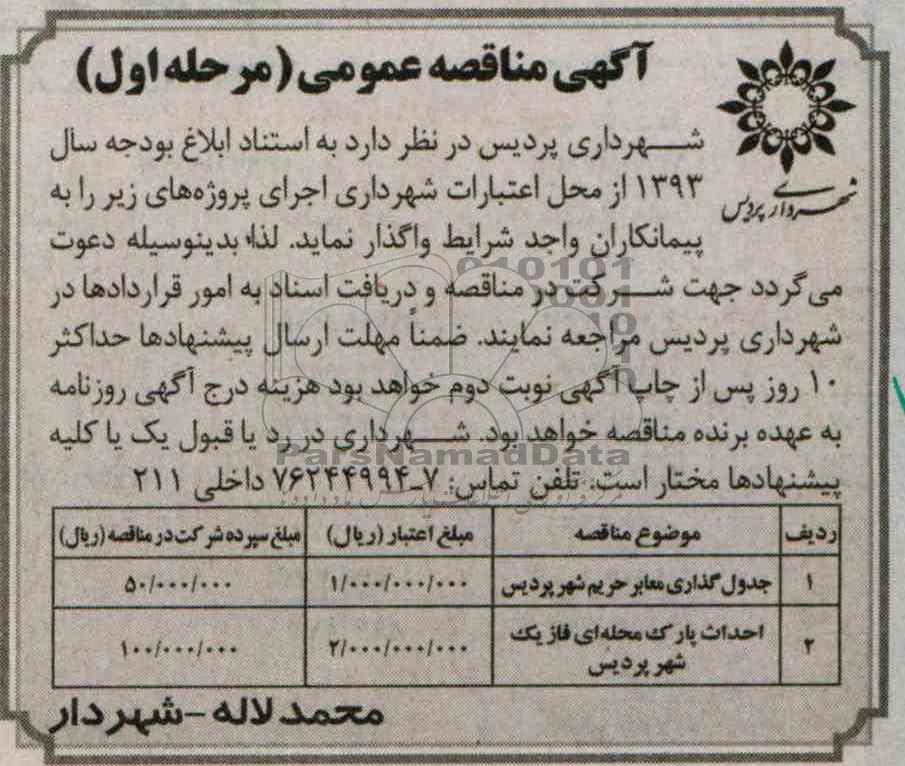 آگهی مناقصه عمومی (مرحله اول)
شهرداری پردیس
شهرداری پردیس در نظر دارد به استناد ابلاغ بودجه سال
۱۳۹۳ از محل اعتبارات شهرداری اجرای پروژه‌های زیر را به
پیمانکاران واجد شرایط واگذار نماید. لذا بدینوسیله دعوت
می‌گردد جهت شرکت در مناقصه و دریافت اسناد به امور قراردادها در
شهرداری پردیس مراجعه نمایند. ضمناً مهلت ارسال پیشنهادها حداکثر
۱۰ روز پس از چاپ آگهی نوبت دوم خواهد بود هزینه درج آگهی روزنامه
به عهده برنده مناقصه خواهد بود. شهرداری در رد یا قبول یک یا کلیه
پیشنهادها مختار است. تلفن تماس: ۷-۷۶۲۴۴۹۹۴ داخلی ۲۱۱
ردیف موضوع مناقصه مبلغ اعتبار (ریال) مبلغ سپرده شرکت در مناقصه (ریال)
۱ جدول گذاری معابر حریم شهر پردیس ۱/۰۰۰/۰۰۰/۰۰۰ ۵۰/۰۰۰/۰۰۰
۲ احداث پارک محله‌ای فاز یک ۲/۰۰۰/۰۰۰/۰۰۰ ۱۰۰/۰۰۰/۰۰۰
شهر پردیس
محمد لاله - شهردار
010101
0001
10
1
0
ParsNamadData